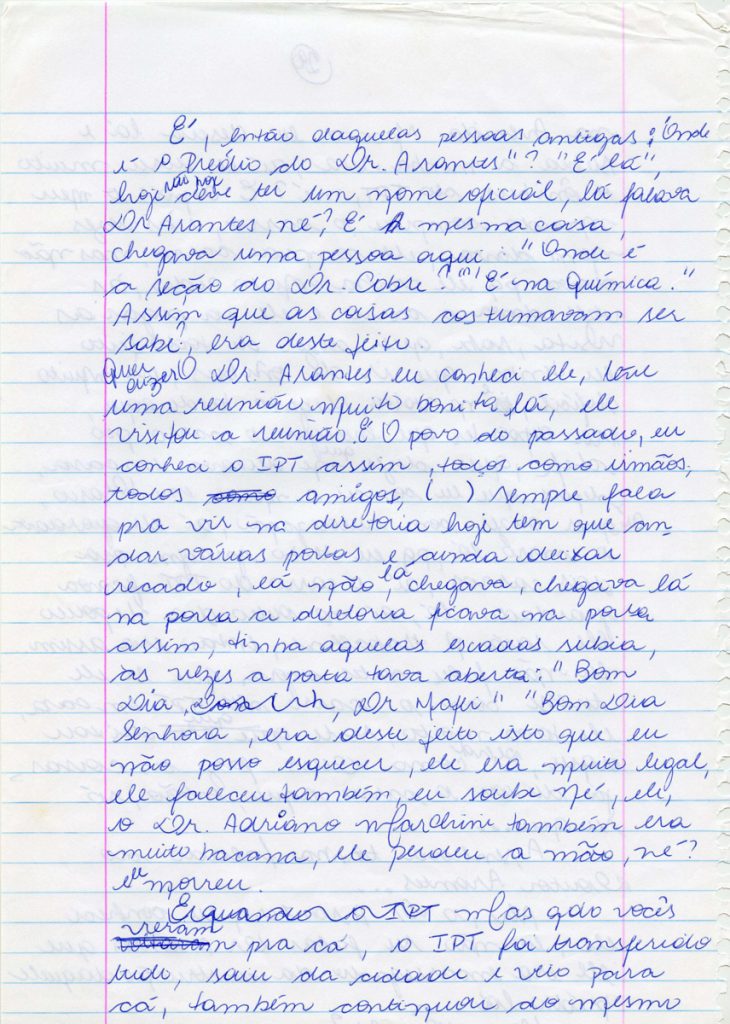 É, então daquelas pessoas antigas: "Onde
é o Prédio do Dr. Arantes"? "É lá",
hoje não pod deve ter um nome oficial, lá falava
Dr Arantes, né? É A mesma coisa,
chegava uma pessoa aqui: "Onde é
a seção do Dr. Cobre?" "É na Química."
Assim que as coisas costumavam ser
sabe?, era deste jeito.
Quer dizer O Dr. Arantes eu conheci ele, tem
uma reunião muito bonita lá, ele
visitou a reunião. É O povo do passado, eu
conheci o IPT assim, todos como irmãos,
todos como amigos, ( ) sempre fala
pra vir na diretoria hoje tem que an-
dar várias portas e ainda deixar
recado, lá não, lá chegava, chegava lá
na porta a diretoria ficava na porta
assim, tinha aquelas escadas subia,
às vezes a porta tava aberta: "Bom
Dia, Dr Maffi" "Bom Dia
Senhora, era deste jeito isto que eu
não posso esquecer, ele era muito legal,
ele faleceu também, eu soube né, ele,
o Dr. Adriano Marchini também era
muito bacana, ele perdeu a mão, né?
ele morreu.
E quando o IPT Mas qdo vocês
vieram pra cá, o IPT foi transferido
tudo, saiu da cidade e veio para
cá, também continuou do mesmo